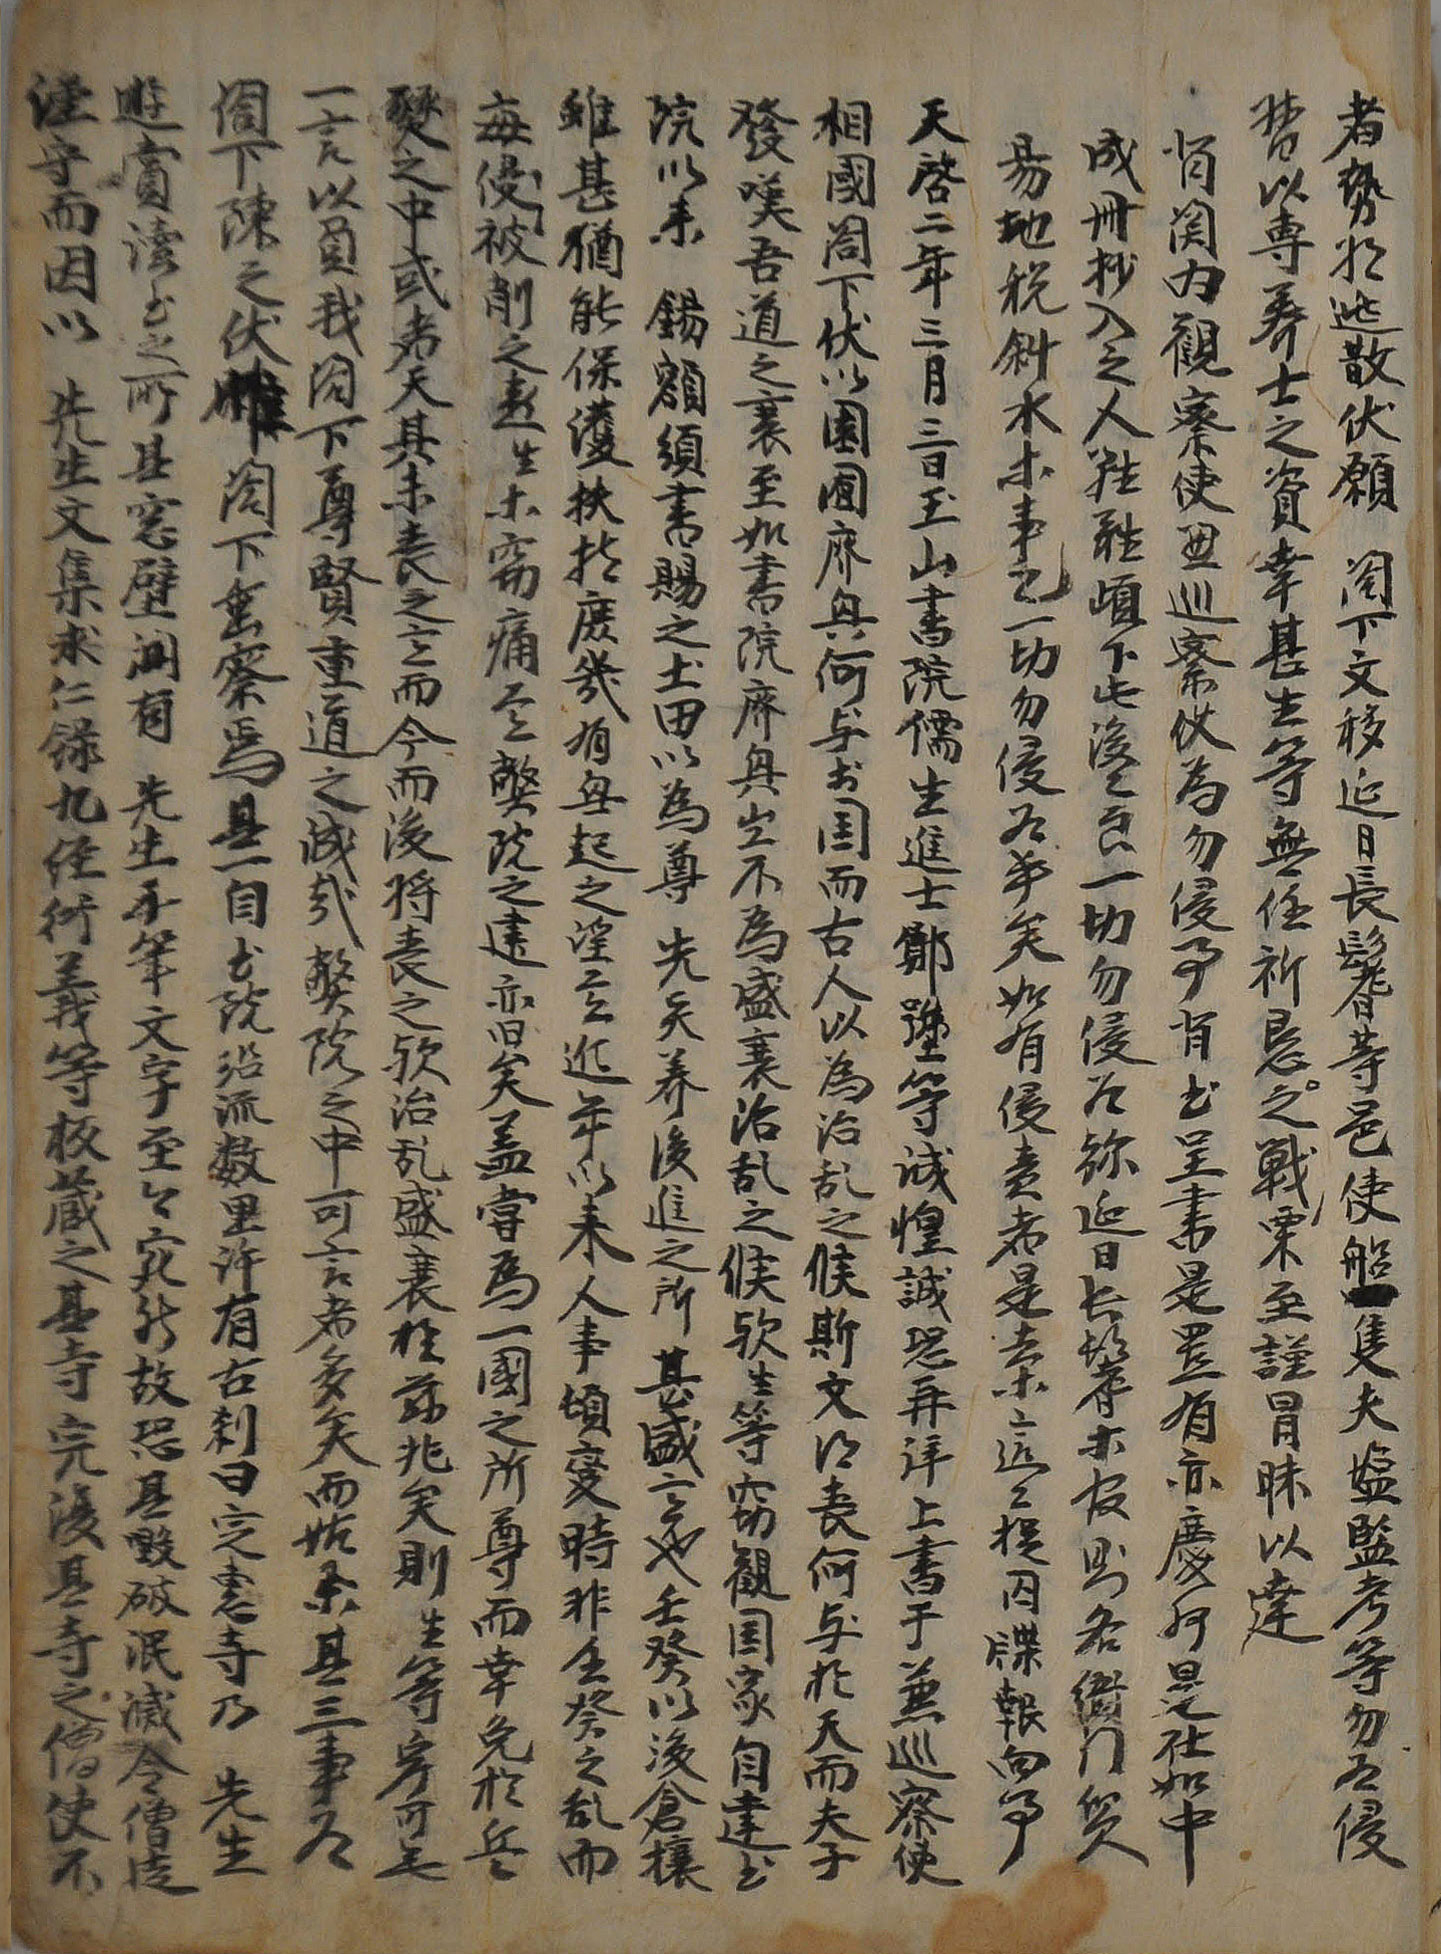 者勢將逃散伏願 閤下文移延日長鬐等邑使船隻夫塩監考等勿爲侵
督以專養士之資幸甚生等無任祈恳之戰栗至謹冒昧以達
背関內觀察使兼巡察使爲勿侵事背書呈書是置有亦慶州是在如中
成冊抄入之人雖 頉下此後乙良一切勿侵爲弥延日長鬐等官則各衙門貿
易地稅斜水等事乙一切勿侵爲乎矣如有侵責者是去等這這摘囚牒報向事
天啓二年三月三日玉山書院儒生進士鄭 等誠惶誠恐再拜上書于兼巡察使
相國閤下伏以國家與何与於國而古人以爲治乱之候斯文得喪何与於天而夫子
發嘆吾道之衰至如書院廢興豈不爲盛衰治乱之候歟生等窃觀國家自建書
院以來 錫額頒書賜之土田以爲尊 先矣养後進之所 甚盛意也壬癸以後倉攘
雖甚猶能保護扶持庶幾有興起之望言近年以來人事頃變時非壬癸之乱而
每侵被削之患生等窃痛焉弊院之建亦旧矣盖嘗爲一國之所尊而幸免於兵
燹之中或者天其未喪之意而今而後將喪之歟治乱盛衰於玆兆矣則生等寧可無
一言以負我閤下尊賢重道之誠哉弊院之中可言者多矣而姑条其三事爲
閤下陳之伏惟 閤下垂察焉其一自書院沿流數里許有古刹曰定惠寺乃 先生
遊賞讀書之所其窓壁間有 先生手筆文字至今宛然故恐其毀破泯滅令僧徒
謹守而因以 先生文集求仁錄九經衍義等板藏之其寺完後其寺之僧使不